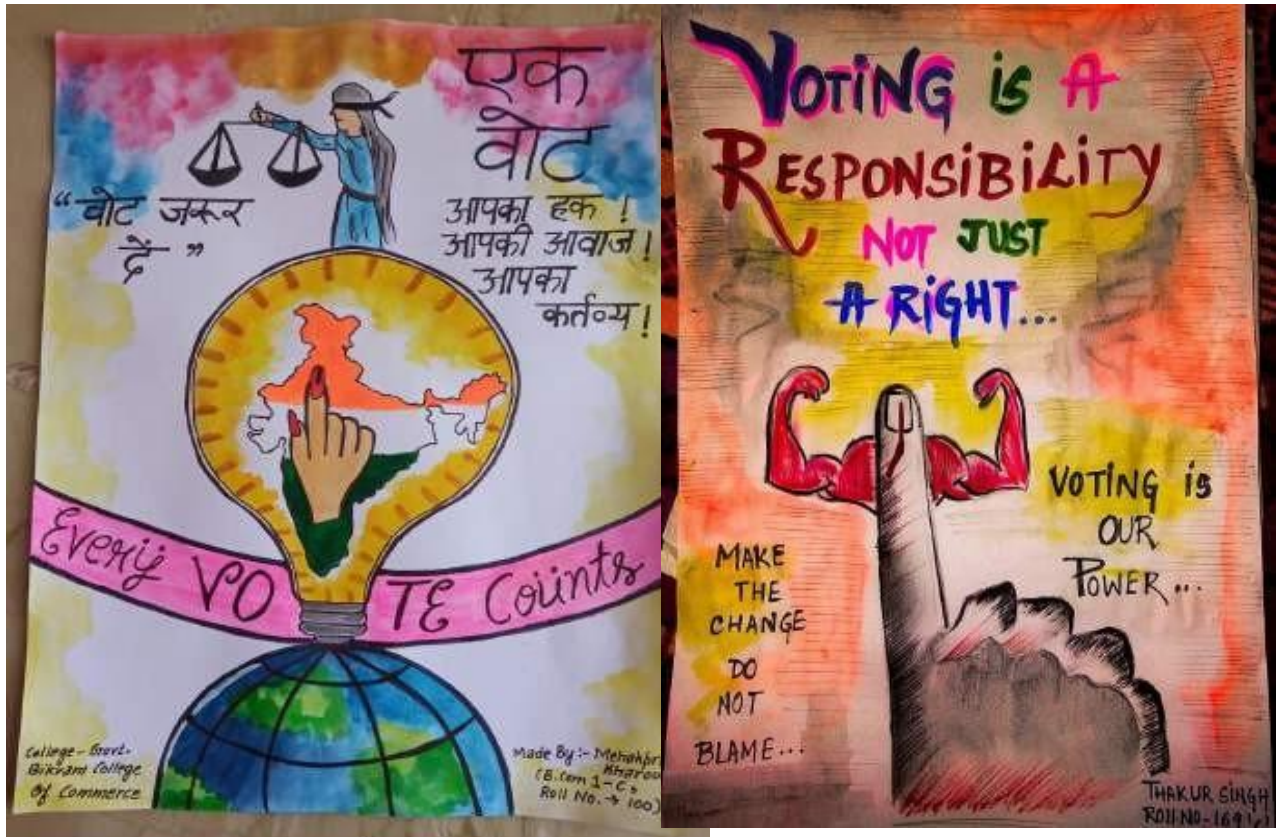 एक
वोट
आपका हक !
आपकी आवाज !
आपका
कर्तव्य !
“ वोट जरूर
दें ”
Every VOTE Counts
College - Govt.
Bikram College
Of Commerce
Made By :-
(B.Com 1-C,
Roll No. → 100)
VOTING is A
RESPONSIBILITY
NOT JUST
A RIGHT...
VOTING is
OUR
POWER...
MAKE
THE
CHANGE
DO
NOT
BLAME...
THAKUR SINGH
ROll NO-